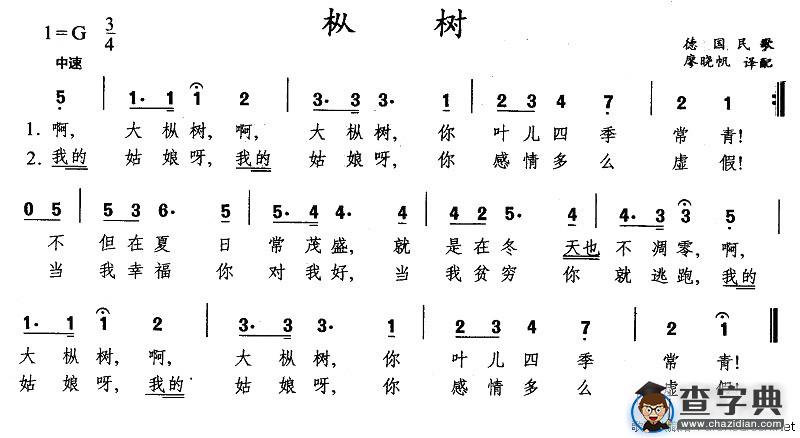 枞树
1=G 3/4
中速
德国民歌
廖晓帆 译配
5 | 1· 1 1 2 | 3· 3 3· 1 | 2 3 4 7 | 2 1 :|
1. 啊, 大枞树, 啊, 大枞树, 你叶儿四季常青!
2. 我的姑娘呀, 我的姑娘呀, 你感情多么虚假!
0 5 | 5 3 6· 5 | 5· 4 4· 4 | 4 2 5· 4 | 4· 3 3 5 |
不但在夏日常茂盛, 就是在冬天也不凋零, 啊,
当我幸福你对我好, 当我贫穷你就逃跑, 我的
1· 1 1 2 | 3· 3 3· 1 | 2 3 4 7 | 2 1 ||
大枞树, 啊, 大枞树, 你叶儿四季常青!
姑娘呀, 我的姑娘呀, 你感情多么虚假!
查字典
www.chazidian.com